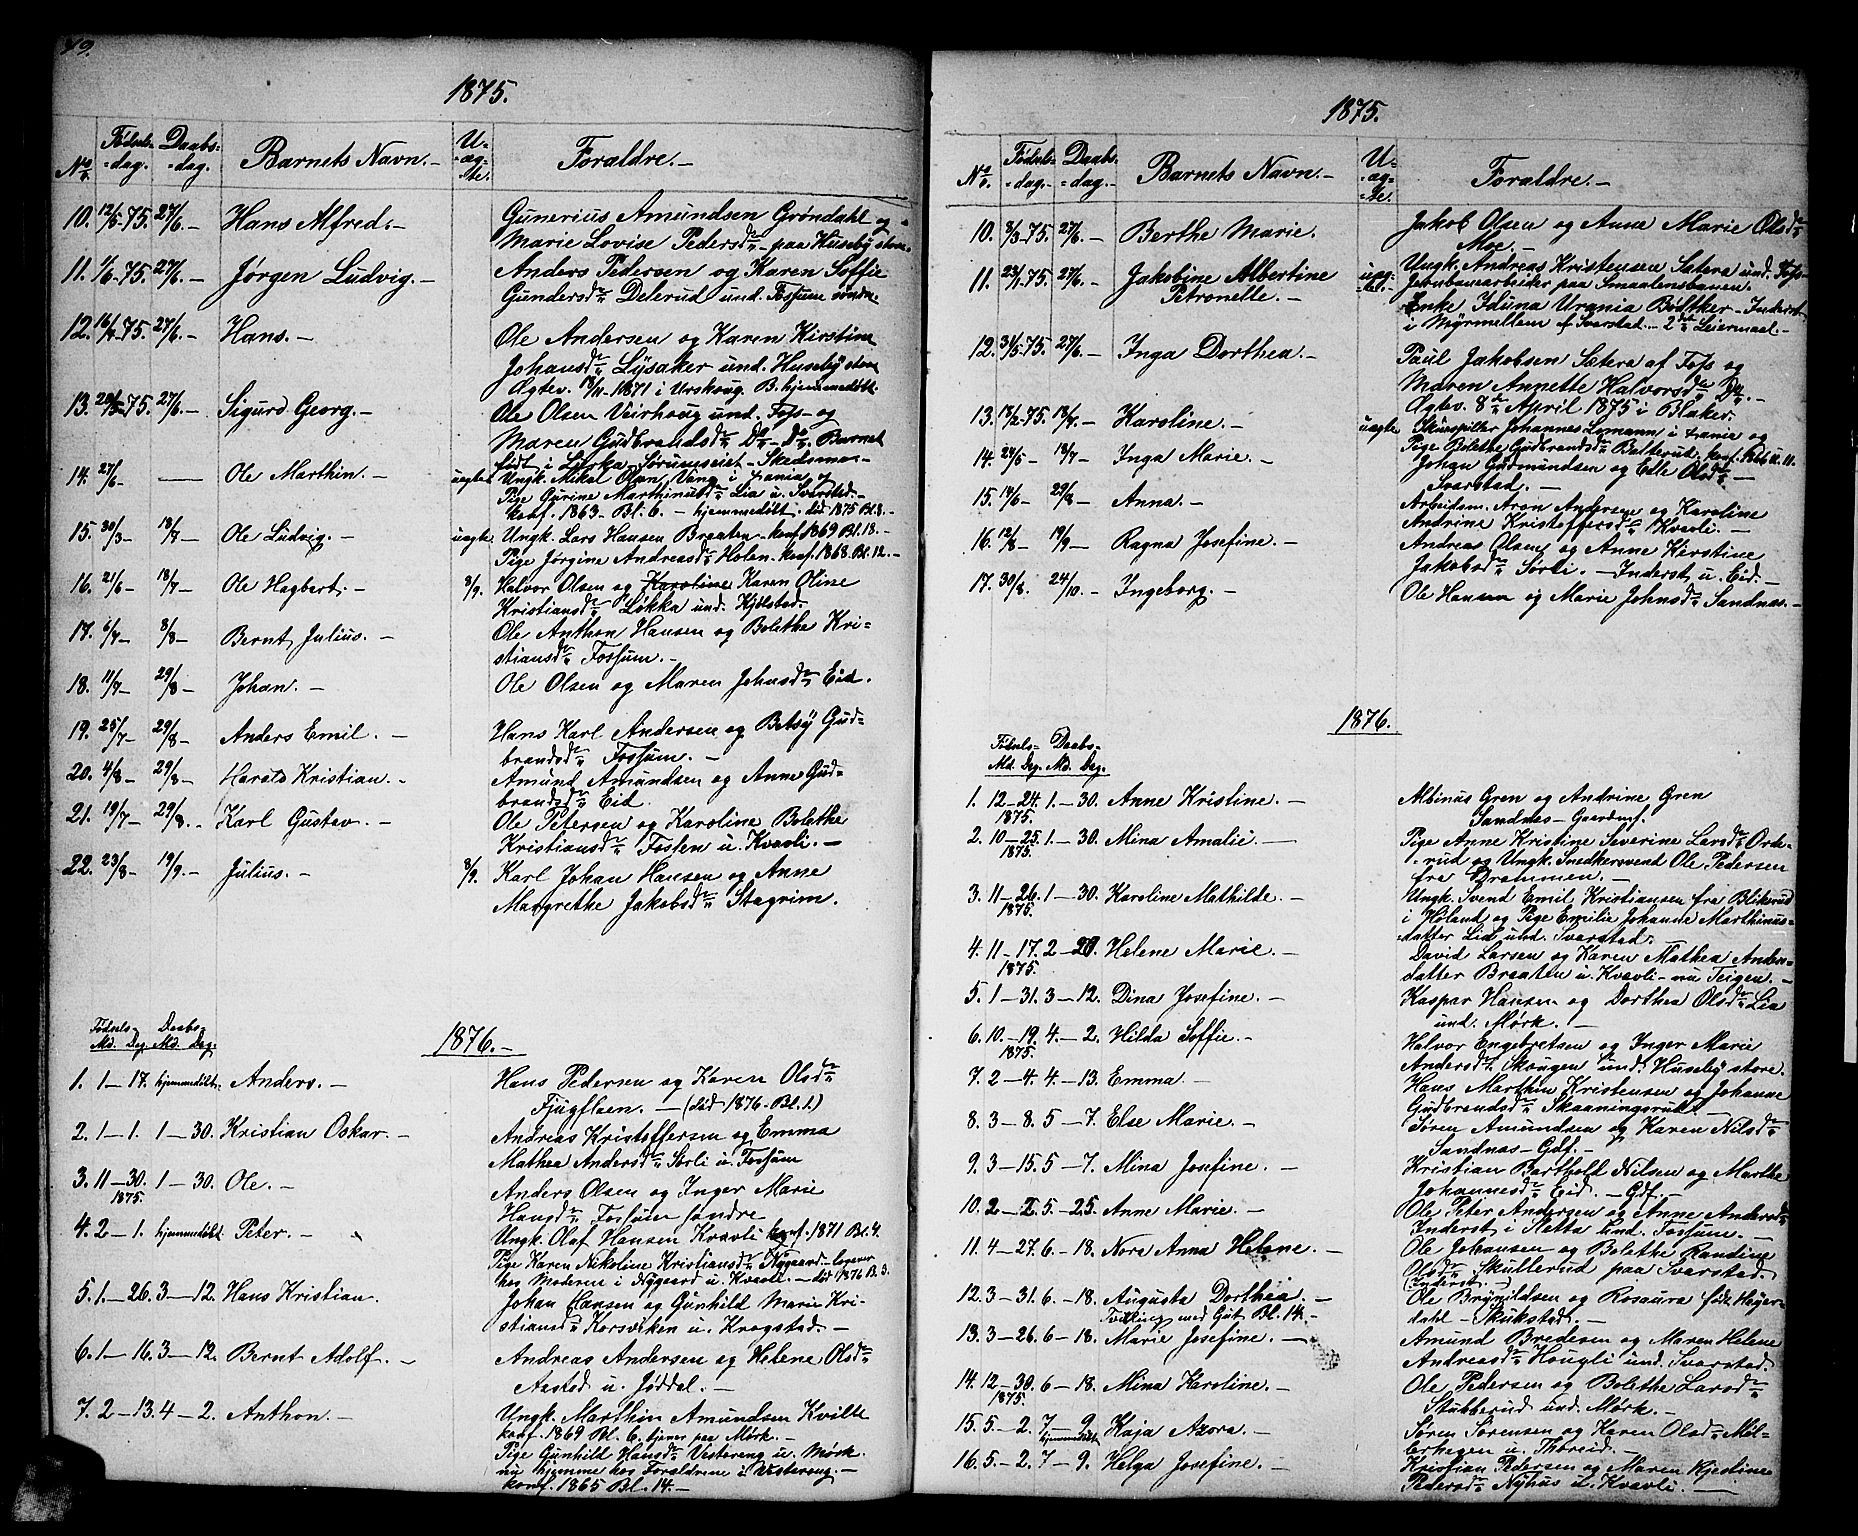 49.
1875.
No. Fødsels-dag. Daabs-dag. Barnets Navn.- U-æg-te. Foraldre.-
10. 12/5-75. 27/6.- Hans Alfred.- Gunerius Amundsen Grøndahl og
Marie Lovise Pedersd. - paa Huseby store.
11. 1/6-75. 27/6.- Jørgen Ludvig.- Anders Pedersen og Karen Soffie
Gundersd. Delerud und. Fossum søndr.
12. 16/4-75. 27/6.- Hans.- Ole Andersen og Karen Kirstine
Johansd. Lysaker und. Huseby store
Ægtev. 1871 i Urskoug. B. hjemmedøbt
13. 75. 27/6.- Sigurd Georg.- Ole Olsen Veirhoug und. Foss og
Maren Gudbrandsd. Do- Do. Barnet
født i Lirka, Sørumseiet - Skedsmo-
14. 27/6- — Ole Marthin.- uægte Ungk. Mikal Olsen Vang i Trania og
Pige Gurine Marthinusd. Lia u. Svarstad.-
konf. 1863- Bl. 6. - hjemmedøbt. død 1875 Bl. 8.-
15. 30/3- 18/7- Ole Ludvig.- uægte. Ungk. Lars Hansen Braaten - konf 1869 Bl. 18.-
Pige Jørgine Andreasd. Holen - konf. 1868. Bl. 12.-
16. 21/6- 18/7- Ole Hagbart.- 8/9. Halvor Olsen og Karoline Karen Oline
Kristiansd. Løkka und. Kjølstad.
17. 6/7- 8/8- Bernt Julius.- Ole Anthon Hansen og Bolethe Kri-
stiansd. Fossum.-
18. 11/7- 29/8- Johan.- Ole Olsen og Maren Johnsd. Eid.
19. 25/7- 29/8- Anders Emil.- Hans Karl Andersen og Betsy Gud-
brandsd. Fossum.-
20. 4/8- 29/8- Harald Kristian.- Amund Amundsen og Anne Gud-
brandsd. Eid.
21. 19/7- 29/8.- Karl Gustav.- Ole Petersen og Karoline Bolethe
Kristiansd. Fosten u. Kvavli.-
22. 23/8- 19/9- Julius.- 8/9. Karl Johan Hansen og Anne
Margrethe Jakobsd. Stagrim.
Fødsels- Daabs-
Md. Dag. Md. Dag. 1876.-
1. 1-17. hjemmedøbt. Anders.- Hans Pedersen og Karen Olsd.
Fjugflaen.- (død 1876. Bl. 1.)
2. 1-1. 1-30. Kristian Oskar.- Andreas Kristoffersen og Emma
Mathea Andersd. Sørli u. Fossum
3. 11-30. 1-30. Ole.- Anders Olsen og Inger Marie
1875. Hansd. Fossum søndre
4. 2-1. hjemmedøbt. Peter.- Ungk. Olaf Hansen Kvavli konf. 1871 Bl. 4.
Pige Karen Nikoline Kristiansd. Nygaard - logerer
hos Moderen i Nygaard u. Kvavli.- død 1876 B. 3.
5. 1-26. 3-12. Hans Kristian. Johan Hansen og Gunhild Marie Kri-
stiansd. Korsviken u. Krogstad.-
6. 1-16. 3-12. Bernt Adolf.- Andreas Andersen og Helene Olsd.
Aastad u. Jøddal.-
7. 2-13. 4-2. Anthon.- Ungk. Marthin Amundsen Kvilte
konf. 1869 Bl. 6. tjener paa Mørk.-
Pige Gunhild Hansd. Vestereng u. Mørk
nu hjemme hos Foraldrene i Vestereng.-
konf. 1865 Bl. 14.-
1875.
No. Fødsels-dag.- Daabs-dag.- Barnets Navn.- U-æg-te. Foraldre.-
10. 3/5-75. 27/6.- Berthe Marie. Jakob Olsen og Anne Marie Olsd.
Moe.-
11. 23/1-75. 27/6.- Jakobine Albertine uæg-te.- Ungk. Andreas Kristensen Satera und. Foss-
Petronelle.- Jernbanearbeider paa Smaalensbanen.
Enke Iduna Urania Bøtker - Inderst
i Myrmellem af Svarstad.- 2det Leiermaal.-
12. 31/5-75. 27/6.- Inga Dorthea.- Paul Jakobsen Satera af Foss og
Maren Annette Halvorsd. Do.-
Ægtev. 8de April 1875 i Blaker.
13. 13/2-75. 18/7.- Karoline.- uægte Skuespiller Johannes Lomann i Trania og
Pige Bolette Gudbrandsd. Balterud.
14. 24/5- 18/7- Inga Marie.- Johan Gudmundsen og Elle Olsd.
Svarstad.-
15. 14/6- 29/8- Anna.- Arbeidsm. Aron Andersen og Karoline
Andrine Kristoffersd. Kvavli.-
16. 12/8- 19/9- Ragna Josefine.- Andreas Olsen og Anne Kirstine
Jakobsd. Sørli.- Inderst u. Eid.-
17. 30/8. 24/10.- Ingeborg.- Ole Hansen og Marie Johnsd. Sandnas.-
1876.
Fødsels- Daabs-
Md. Dag. Md. Dag.
1. 12-24. 1-30. Anne Kristine.- Albinus Gren og Andrine Gren
1875. Sandnas - Gaardmf.
2. 10-25. 1-30. Mina Amalie.- Pige Anne Kristine Severine Larsd. Orde-
1875. rud og Ungk. Snedkersvend Ole Pedersen
fra Drammen.-
3. 11-26. 1-30. Karoline Mathilde.- Ungk. Svend Emil Kristiansen fra Bliksrud
1875. i Høland og Pige Emilie Johanne Marthinus-
datter Lia und. Svarstad.
4. 11-17. 2-20. Helene Marie.- David Larsen og Karen Mathea Anders-
1875. datter Braaten u. Kvavli - nu Teigen.-
5. 1-31. 3-12. Dina Josefine.- Kaspar Hansen og Dorthea Olsd. Lia
und. Mørk.-
6. 10-19. 4-2. Hilda Soffie.- Halvor Engebretsen og Inger Marie
1875. Andersd. Skougen und. Huseby store.
7. 2-4. 4-13. Emma.- Hans Marthin Kristensen og Johanne
Gudbrandsd. Skaaningsrud.
8. 3-8. 5-7. Else Marie.- Søren Amundsen og Karen Nilsd.
Sandnas - Gdf.-
9. 3-15. 5-7. Mina Josefine.- Kristian Barthold Nilsen og Marthe
Johannesd. Eid.- Gdf.-
10. 2-2. 5-25. Anne Marie.- Ole Peter Andersen og Anne Andersd.
Inderst i Sletta und. Fossum.-
11. 4-27. 6-18. Nora Anna Helene.- Ole Johansen og Bolette Randine
Olsd. Skullerud paa Svarstad.
(Inderst.-)
12. 3-31. 6-18. Augusta Dorthea.- Ole Brynildsen og Rosaura født Høyer-
Tvilling med Gut Bl. 14.- dahl - Skukstad.-
13. 3-26. 6-18. Marie Josefine.- Amund Bredesen og Maren Helene
Andreasd. Hougli und. Svarstad.
14. 12-30. 6-18. Mina Karoline.- Ole Pedersen og Bolethe Larsd.
1875. Stubberud und. Mørk.-
15. 5-2. 7-9. Kaja Azora.- Søren Sørensen og Karen Olsd. Mil-
hjemmedøbt erhagen u. Thoreid.-
16. 5-2. 7-9. Helga Josefine.- Kristian Pedersen og Maren Kjestine
Pedersd. Nyhus u. Kvavli.-